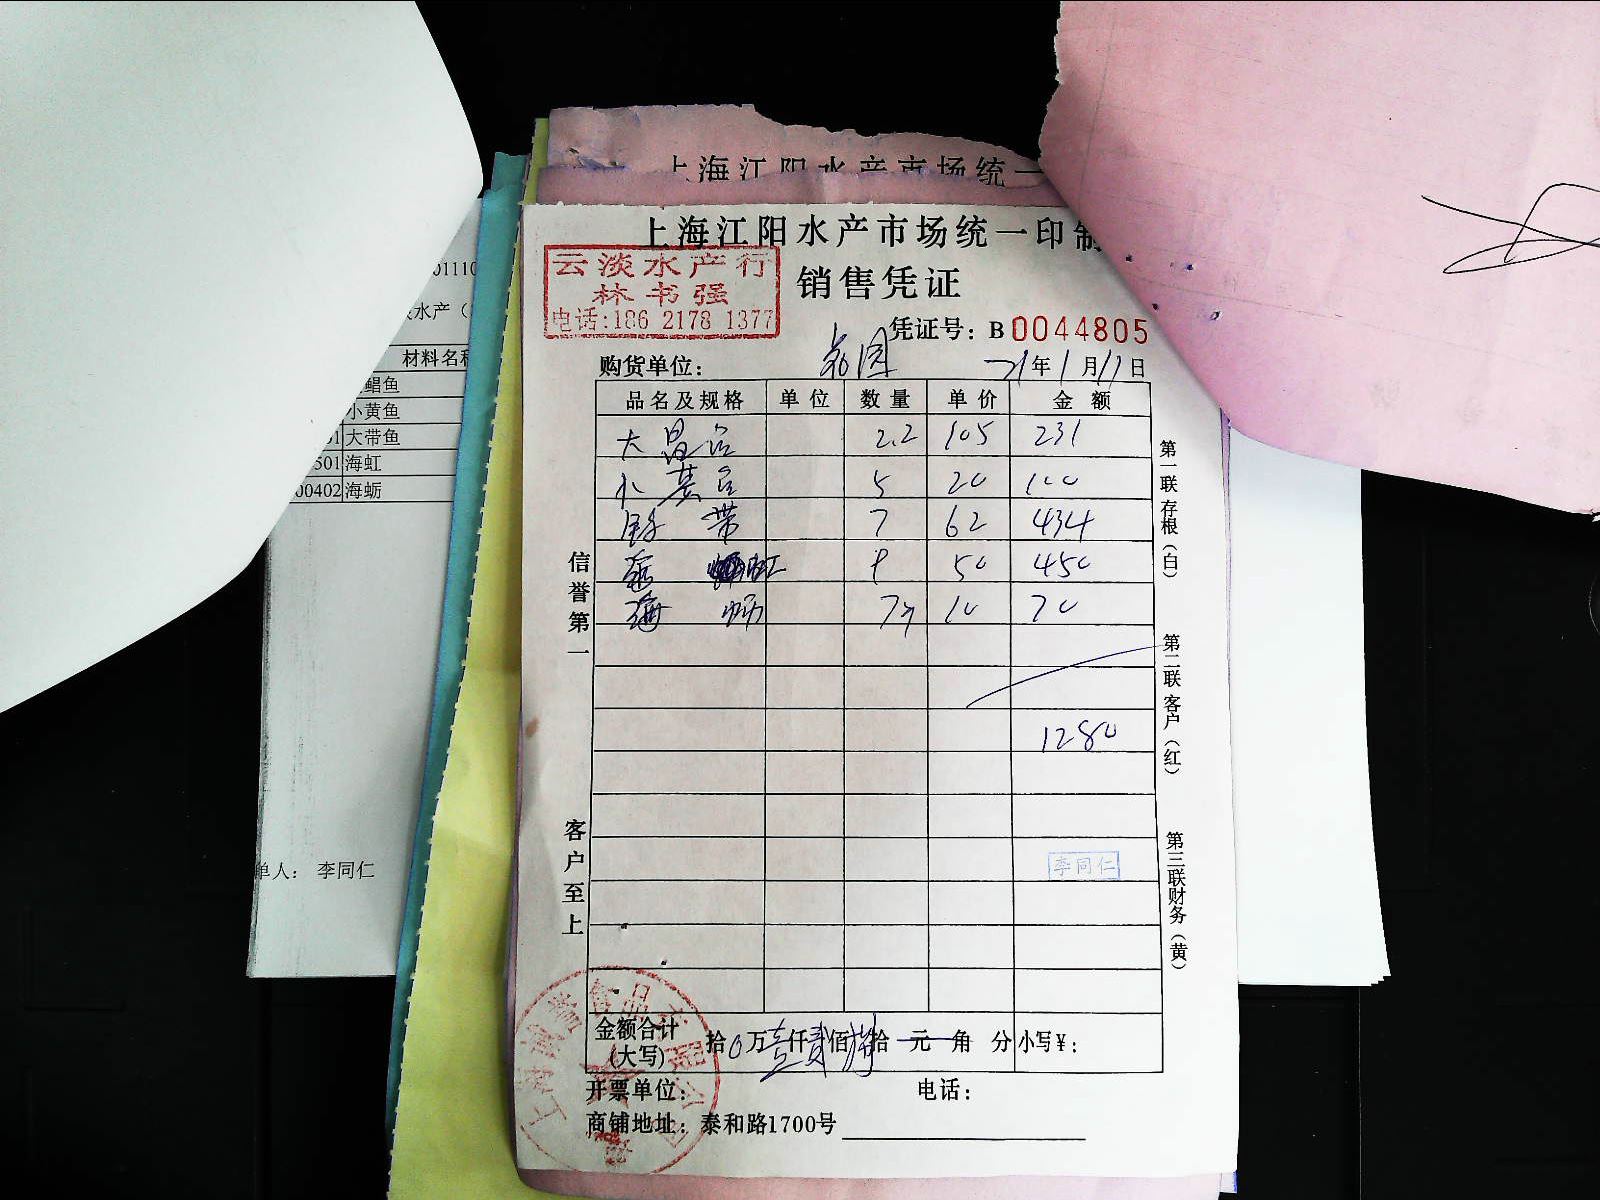 上海江阳水产市场统一
上海江阳水产市场统一印制
销售凭证
云淡水产行
林书强
电话:186 2178 1377
凭证号：B0044805
购货单位：
21年1月11日
品名及规格 单位 数量 单价 金额
大 2.2 105 231
小 5 20 100
带 7 62 434
虹 50 450
海蛎 7 10 70
1280
李同仁
金额合计(大写) 拾0万壹仟贰佰捌拾元角分 小写￥：
开票单位： 电话：
商铺地址：泰和路1700号
信誉第一
客户至上
第一联存根（白）
第二联客户（红）
第三联财务（黄）
01110
水产（
材料名称
鲳鱼
小黄鱼
01大带鱼
501海虹
00402海蛎
单人： 李同仁